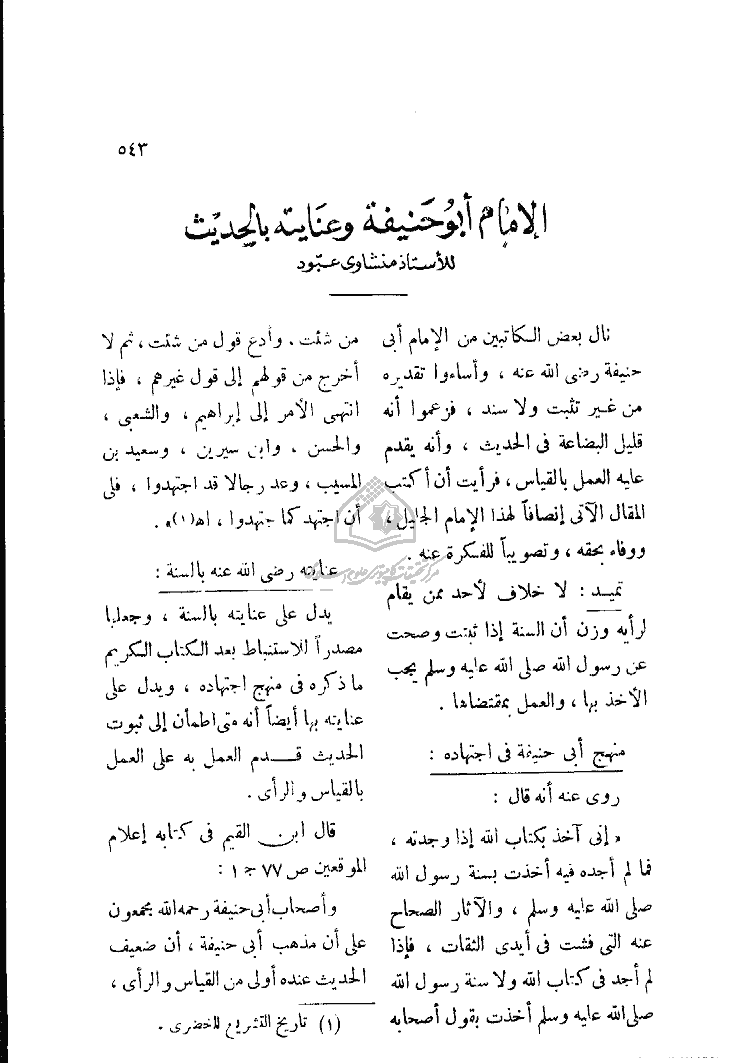 ٥٤٣
الإمام أبو حنيفة وعنايته بالحديث
للأستاذ منشاوى عبود
نال بعض الكاتبين من الإمام أبى
حنيفة رضى الله عنه ، وأساءوا تقديره
من غير تثبت ولا سند ، فزعموا أنه
قليل البضاعة فى الحديث ، وأنه يقدم
عليه العمل بالقياس ، فرأيت أن أكتب
المقال الآتى إنصافاً لهذا الإمام الجليل ،
ووفاء بحقه ، وتصويباً للفكرة عنه .
تمهيد : لا خلاف لأحد ممن يقام
لرأيه وزن أن السنة إذا ثبتت وصحت
عن رسول الله صلى الله عليه وسلم يجب
الأخذ بها ، والعمل بمقتضاها .
منهج أبى حنيفة فى اجتهاده :
روى عنه أنه قال :
« إنى آخذ بكتاب الله إذا وجدته ،
فما لم أجده فيه أخذت بسنة رسول الله
صلى الله عليه وسلم ، والآثار الصحاح
عنه التى فشت فى أيدى الثقات ، فإذا
لم أجد فى كتاب الله ولا سنة رسول الله
صلى الله عليه وسلم أخذت بقول أصحابه
من شئت . وأدع قول من شئت ، ثم لا
أخرج من قولهم إلى قول غيرهم ، فإذا
انتهى الأمر إلى إبراهيم ، والشعبى ،
والحسن ، وابن سيرين ، وسعيد بن
المسيب ، وعد رجالا قد اجتهدوا ، فلى
أن اجتهد كما جتهدوا ، اه(١)» .
عنايته رضى الله عنه بالسنة :
يدل على عنايته بالسنة ، وجعلها
مصدراً للاستنباط بعد الكتاب الكريم
ما ذكره فى منهج اجتهاده ، ويدل على
عنايته بها أيضاً أنه متى اطمأن إلى ثبوت
الحديث قدم العمل به على العمل
بالقياس والرأى .
قال ابن القيم فى كتابه إعلام
الموقعين ص ٧٧ ج ١ :
وأصحاب أبى حنيفة رحمه الله يجمعون
على أن مذهب أبى حنيفة ، أن ضعيف
الحديث عنده أولى من القياس والرأى ،
(١) تاريخ التشريع للخضرى .